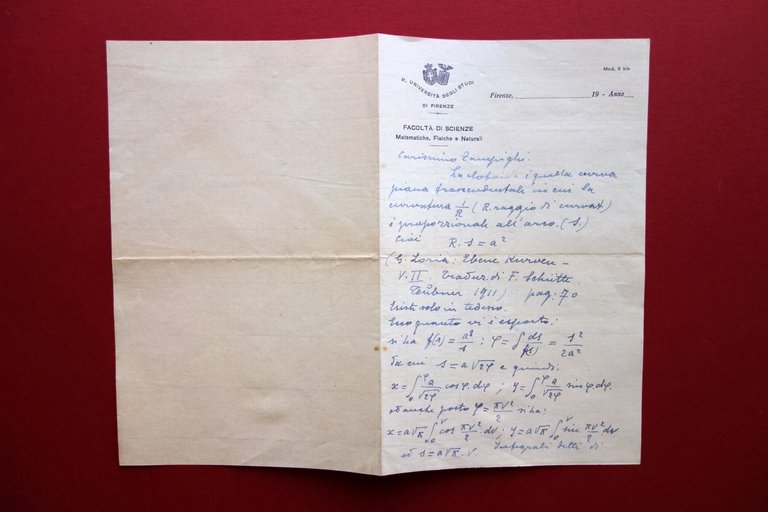 R. UNIVERSITÀ DEGLI STUDI
DI FIRENZE
FACOLTÀ DI SCIENZE
Matematiche, Fisiche e Naturali
Mod. 5 bis
Firenze, 19 - Anno
Carissimo Zampighi.
La clotoide è quella curva
piana trascendentale in cui la
curvatura 1/R (R. raggio di curvat)
è proporzionale all'arco. (S.)
Cioè R. s = a²
(G. Loria: Ebene Kurven –
V. II. Tradur. di F. Schütte
Teubner 1911) pag. 70
Esiste solo in tedesco.
Ecco quanto vi è esposto:
si ha f(s) = a²/s ; φ = ∫ ds/f(s) = s²/2a²
da cui s = a√2φ e quindi:
x = ∫₀^φ a/√2φ cos φ dφ ; y = ∫₀^φ a/√2φ sin φ dφ.
od anche posto φ = πv²/2 si ha:
x = a√π ∫₀^v cos πv²/2 . dv ; y = a√π ∫₀^v sin πv²/2 dv
ed s = a√π . v Integrali detti di